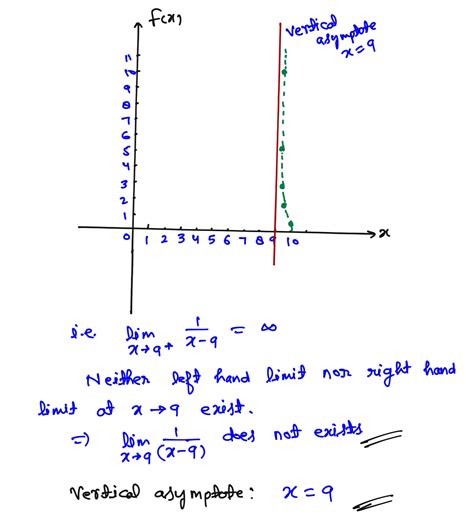 f(x)
vertical
asymptote
x=9
11
10
9
8
7
6
5
4
3
2
1
0 1 2 3 4 5 6 7 8 9 10
x
i.e. lim x→9+ 1/(x-9) = ∞
Neither left hand limit nor right hand
limit at x→9 exist.
⇒) lim x→9 1/(x-9) does not exists
vertical asymptote: x=9